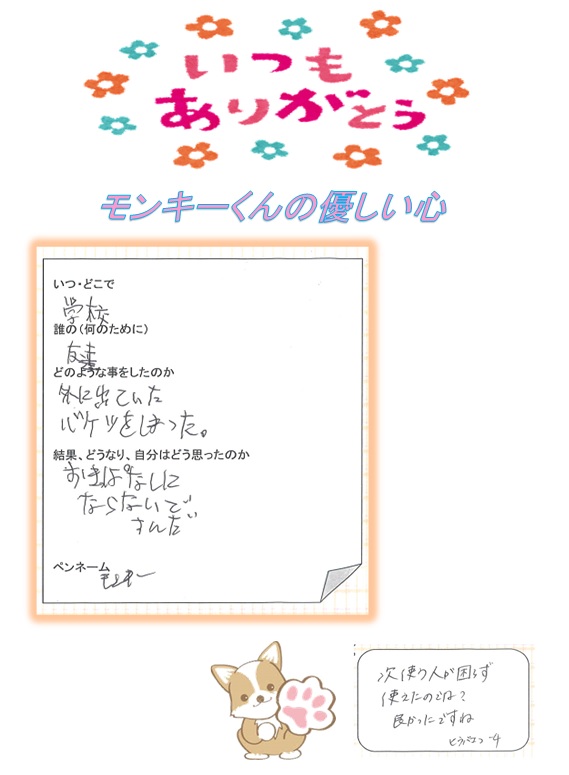 いつも
ありがとう
モンキーくんの優しい心
いつ・どこで
学校
誰の(何のために)
友達
どのような事をしたのか
外に出ていた
バケツをしまった。
結果、どうなり、自分はどう思ったのか
おきっぱなしに
ならないで
すんだ
ペンネーム
モンキー
次使う人が困らず
使えたのでは?
良かったですね